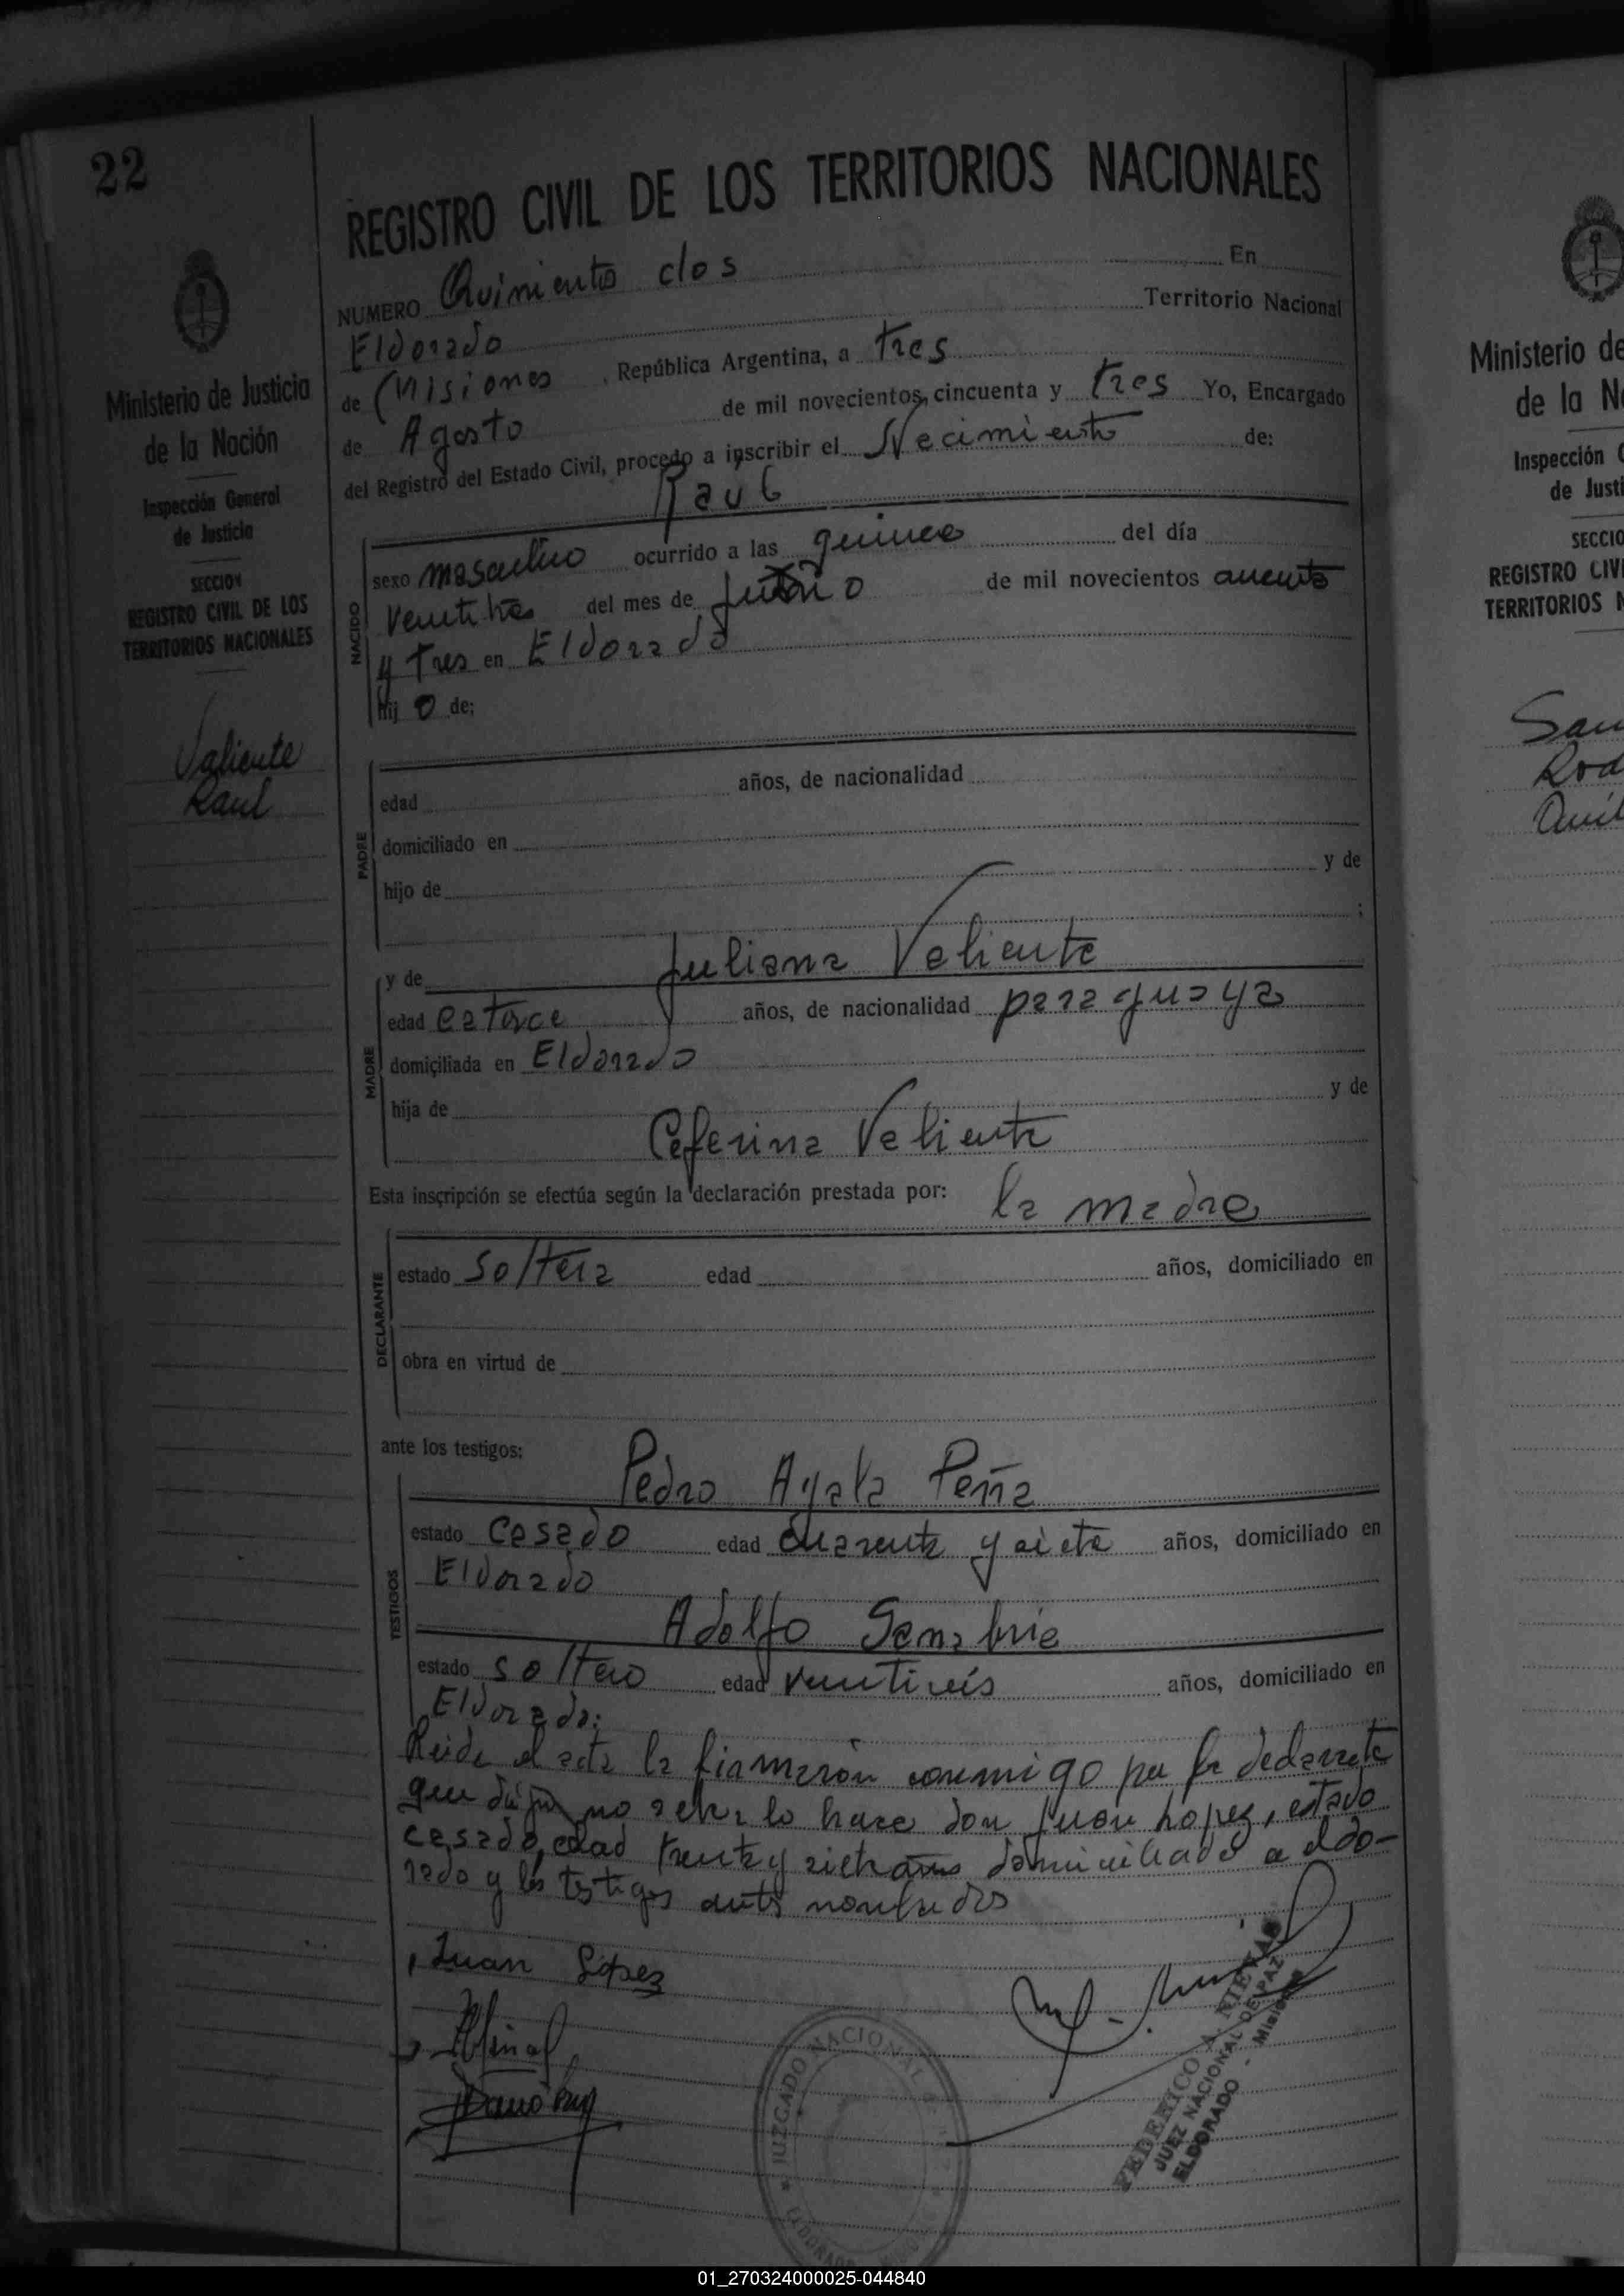 22
REGISTRO CIVIL DE LOS TERRITORIOS NACIONALES
Ministerio de Justicia
de la Nación
Inspección General
de Justicia
SECCION
REGISTRO CIVIL DE LOS
TERRITORIOS NACIONALES
Valiente
Raul
NUMERO Quiniento dos En
Eldorado Territorio Nacional
de Misiones, República Argentina, a tres
de Agosto de mil novecientos cincuenta y tres Yo, Encargado
del Registro del Estado Civil, procedo a inscribir el Necimiento de:
Raul
NACIDO
sexo masculino ocurrido a las quince del día
ventitres del mes de de mil novecientos
y tres en Eldorado
hij o de:
PADRE
edad años, de nacionalidad
domiciliado en
hijo de y de
;
MADRE
y de Juliana Valiente
edad catorce años, de nacionalidad paraguaya
domiciliada en Eldorado
hija de y de
Ceferina Valiente
Esta inscripción se efectúa según la declaración prestada por: la madre
DECLARANTE
estado soltera edad años, domiciliado en
obra en virtud de
ante los testigos:
TESTIGOS
Pedro Ayala Peña
estado casado edad cuarenta y siete años, domiciliado en
Eldorado
Adolfo Sanabria
estado soltero edad años, domiciliado en
Eldorado:
el acta la firmaron conmigo por la declarante
que dijo no saber lo hace don Juan Lopez, estado
casado, edad treinta y siete años domiciliado en eldo-
rado y los testigos antes nombrados
Juan López
JUZGADO NACIONAL DE PAZ
ELDORADO
FEDERICO A. NIEVAS
JUEZ NACIONAL DE PAZ
ELDORADO - Misiones
Ministerio de
de la N
Inspección G
de Justi
SECCIO
REGISTRO CIVI
TERRITORIOS N
San
Rod
01_270324000025-044840